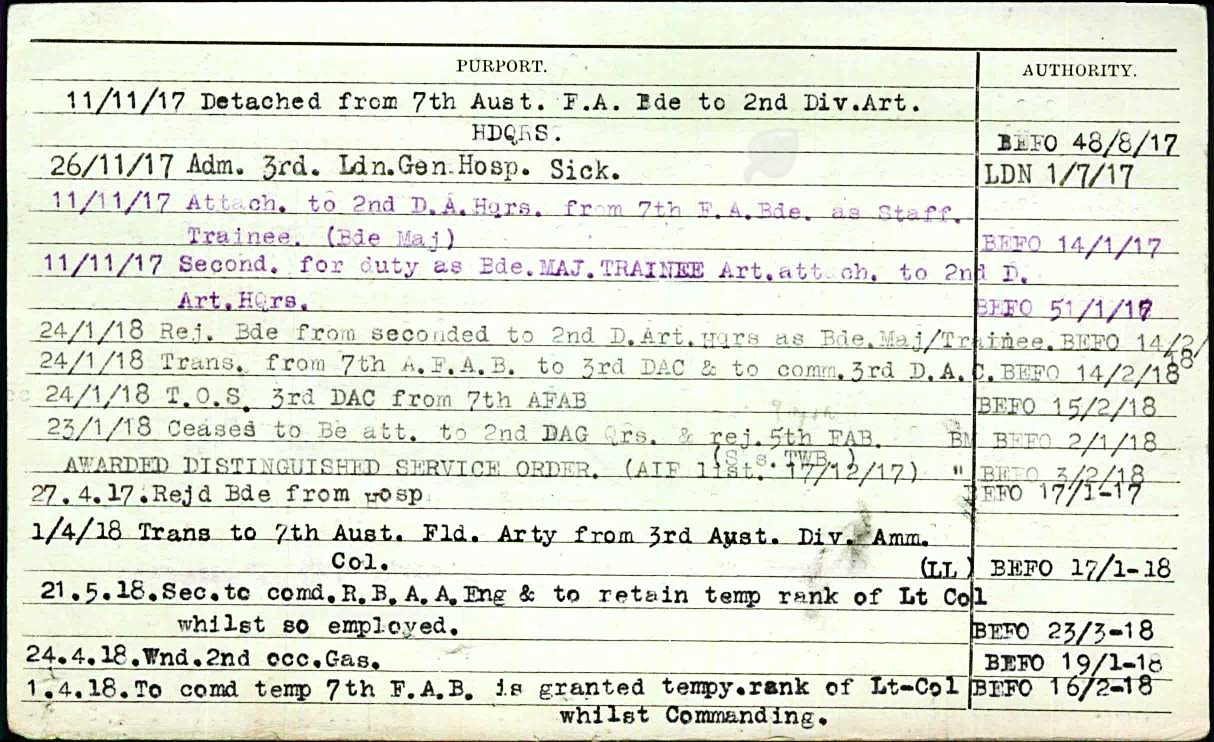 PURPORT. AUTHORITY.
11/11/17 Detached from 7th Aust. F.A. Bde to 2nd Div.Art.
HDQRS. BEFO 48/8/17
26/11/17 Adm. 3rd. Ldn.Gen.Hosp. Sick. LDN 1/7/17
11/11/17 Attach. to 2nd D.A.Hqrs. from 7th F.A.Bde. as Staff.
Trainee. (Bde Maj) BEFO 14/1/17
11/11/17 Second. for duty as Bde.MAJ.TRAINEE Art.attach. to 2nd D.
Art.Hqrs. BEFO 51/1/17
24/1/18 Rej. Bde from seconded to 2nd D.Art.Hqrs as Bde.Maj/Trainee.BEFO 14/2/18
24/1/18 Trans. from 7th A.F.A.B. to 3rd DAC & to comm.3rd D.A.C.BEFO 14/2/18
24/1/18 T.O.S. 3rd DAC from 7th AFAB BEFO 15/2/18
23/1/18 Ceases to Be att. to 2nd DAG Qrs. & rej.5th FAB. BEFO 2/1/18
(S.s. TWB.)
AWARDED DISTINGUISHED SERVICE ORDER. (AIF list. 17/12/17) " BEFO 3/2/18
27.4.17.Rejd Bde from Hosp BEFO 17/1-17
1/4/18 Trans to 7th Aust. Fld. Arty from 3rd Aust. Div. Amm.
Col. (LL) BEFO 17/1-18
21.5.18.Sec.to comd.R.B.A.A.Eng & to retain temp rank of Lt Col
whilst so employed. BEFO 23/3-18
24.4.18.Wnd.2nd occ.Gas. BEFO 19/1-18
1.4.18.To comd temp 7th F.A.B. is granted tempy.rank of Lt-Col BEFO 16/2-18
whilst Commanding.